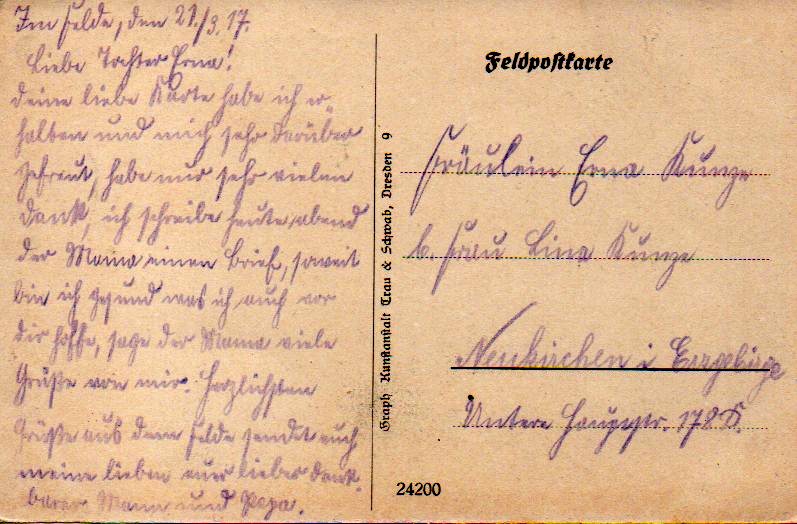 Im Felde, den 21./3.17.
Liebe Tochter Erna!
Deine liebe Karte habe ich er-
halten und mich sehr darüber
gefreut, habe nur sehr vielen
Dank, ich schreibe heute abend
der Mama einen Brief, soweit
bin ich gesund was ich auch vor
dir hoffe, sage der Mama viele
Grüße von mir. Herzlichsten
Grüße aus dem Felde sendet euch
meine lieben euer lieber dank-
barer Mann und Papa.
Feldpostkarte
Fräulein Erna Kunze
b. Frau Lina Kunze
Neukirchen i Erzgebirge
Untere Hauptstr. 178 D.
Graph Kunstanstalt Trau & Schwab, Dresden 9
24200